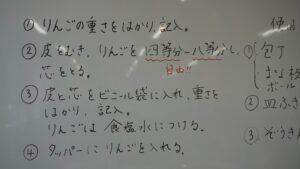 ① りんごの重さをはかり、記入。
② 皮をむき、りんごを 四等分〜八等分し、
自由!!
芯をとる。
③ 皮と芯をビニール袋に入れ、重さを
はかり、記入。
りんごは 食塩水につける。
④ タッパーに りんごを入れる。
① 包丁
まな板
ボール
② 皿ふき
③ ぞうきん